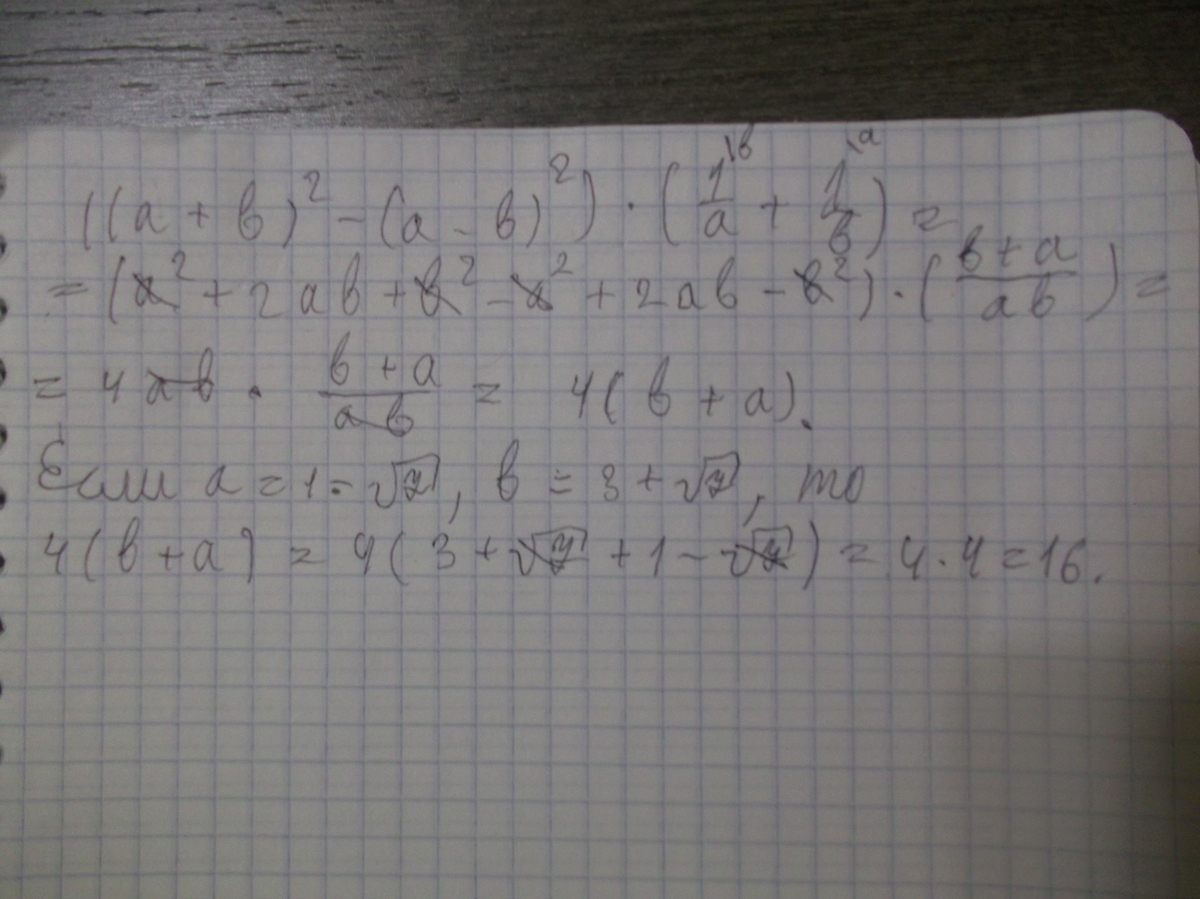 ((a + b)² - (a - b)²) · (1/a \b + 1/b \a) =
= (a² + 2ab + b² - a² + 2ab - b²) · (b + a / ab) =
= 4ab · b + a / ab = 4(b + a).
Если a = 1 - √7, b = 3 + √7, то
4(b + a) = 4(3 + √7 + 1 - √7) = 4 · 4 = 16.